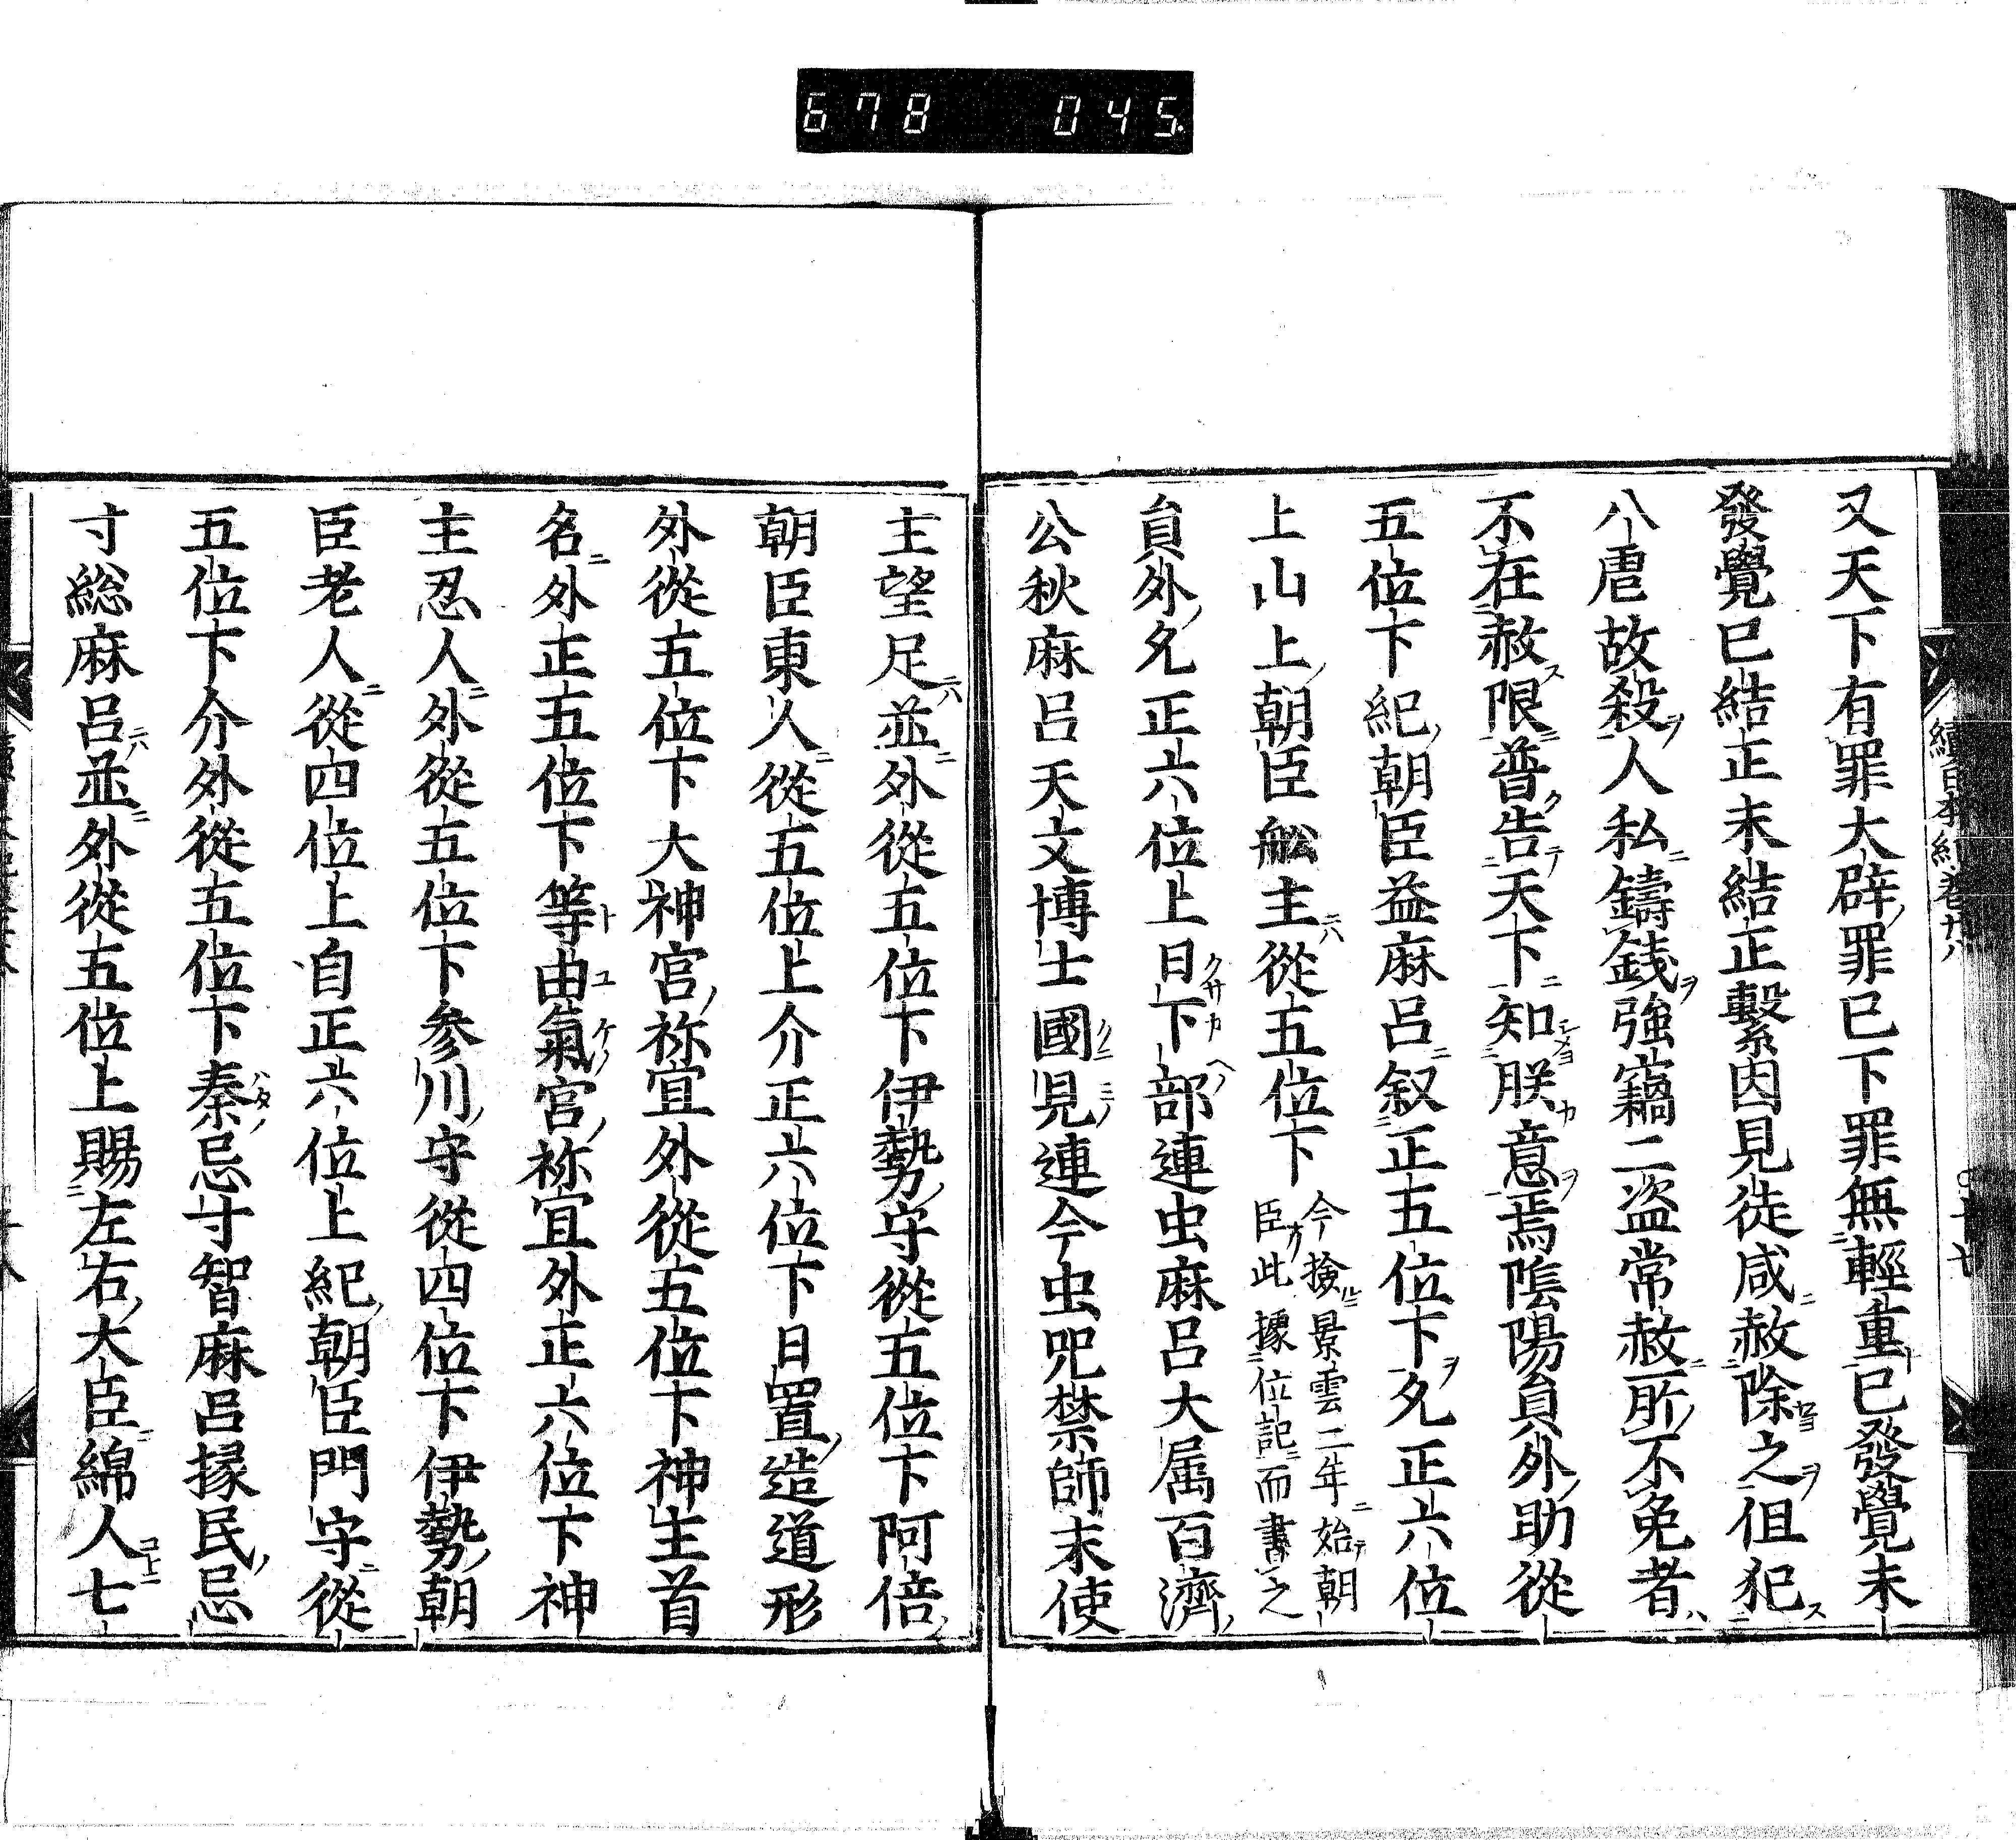 678 045
續日本紀卷廿八
又天下有罪大辟罪已下罪無輕重已發覺未
發覺已結正未結正繫囚見徒咸赦除之但犯
八虐故殺人私鑄銭強竊二盗常赦所不免者
不在赦限普告天下知朕意焉陰陽員外助從
五位下紀朝臣益麻呂叙正五位下允正六位
上山上朝臣舩主從五位下今撿景雲二年始朝臣此據位記而書之
員外允正六位上日下部連虫麻呂大属百濟
公秋麻呂天文博士國見連今虫咒禁師末使
主望足並外從五位下伊勢守從五位下阿倍
朝臣東人從五位上介正六位下日置造道形
外從五位下大神宮祢宜外從五位下神主首
名外正五位下等由氣宮祢宜外正六位下神
主忍人外從五位下参川守從四位下伊勢朝
臣老人從四位上自正六位上紀朝臣門守從
五位下介外從五位下秦忌寸智麻呂掾民忌
寸総麻呂並外從五位上賜左右大臣綿人七